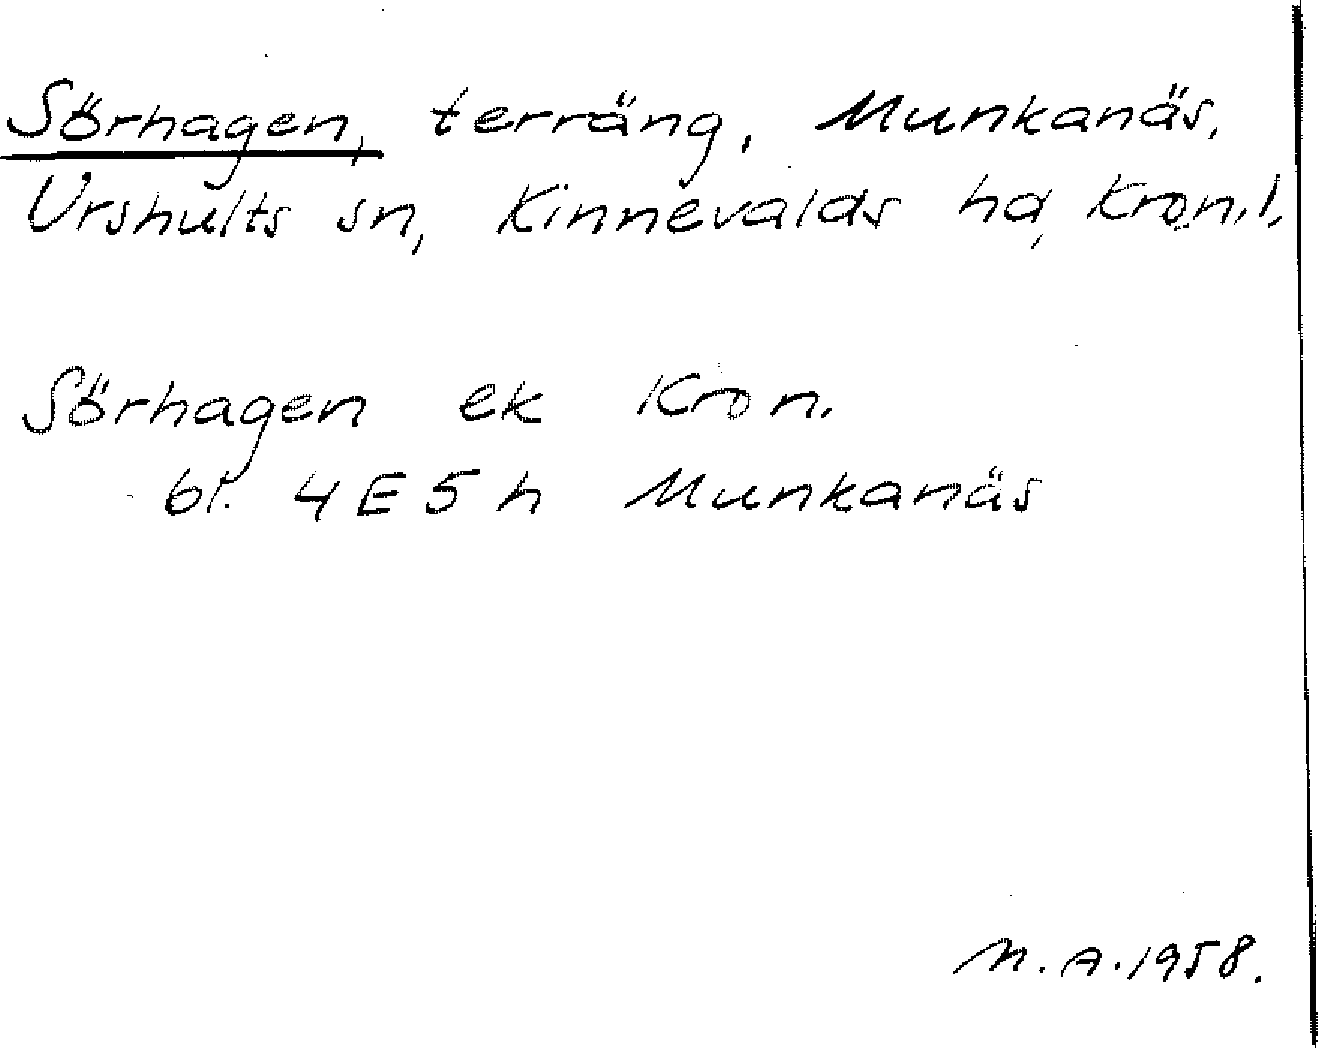 Sörhagen, terräng, Munkanäs,
Urshults sn, Kinnevalds hd, Kron.l,
Sörhagen ek Kron.
bl. 4E5h Munkanäs
M.A.1958.